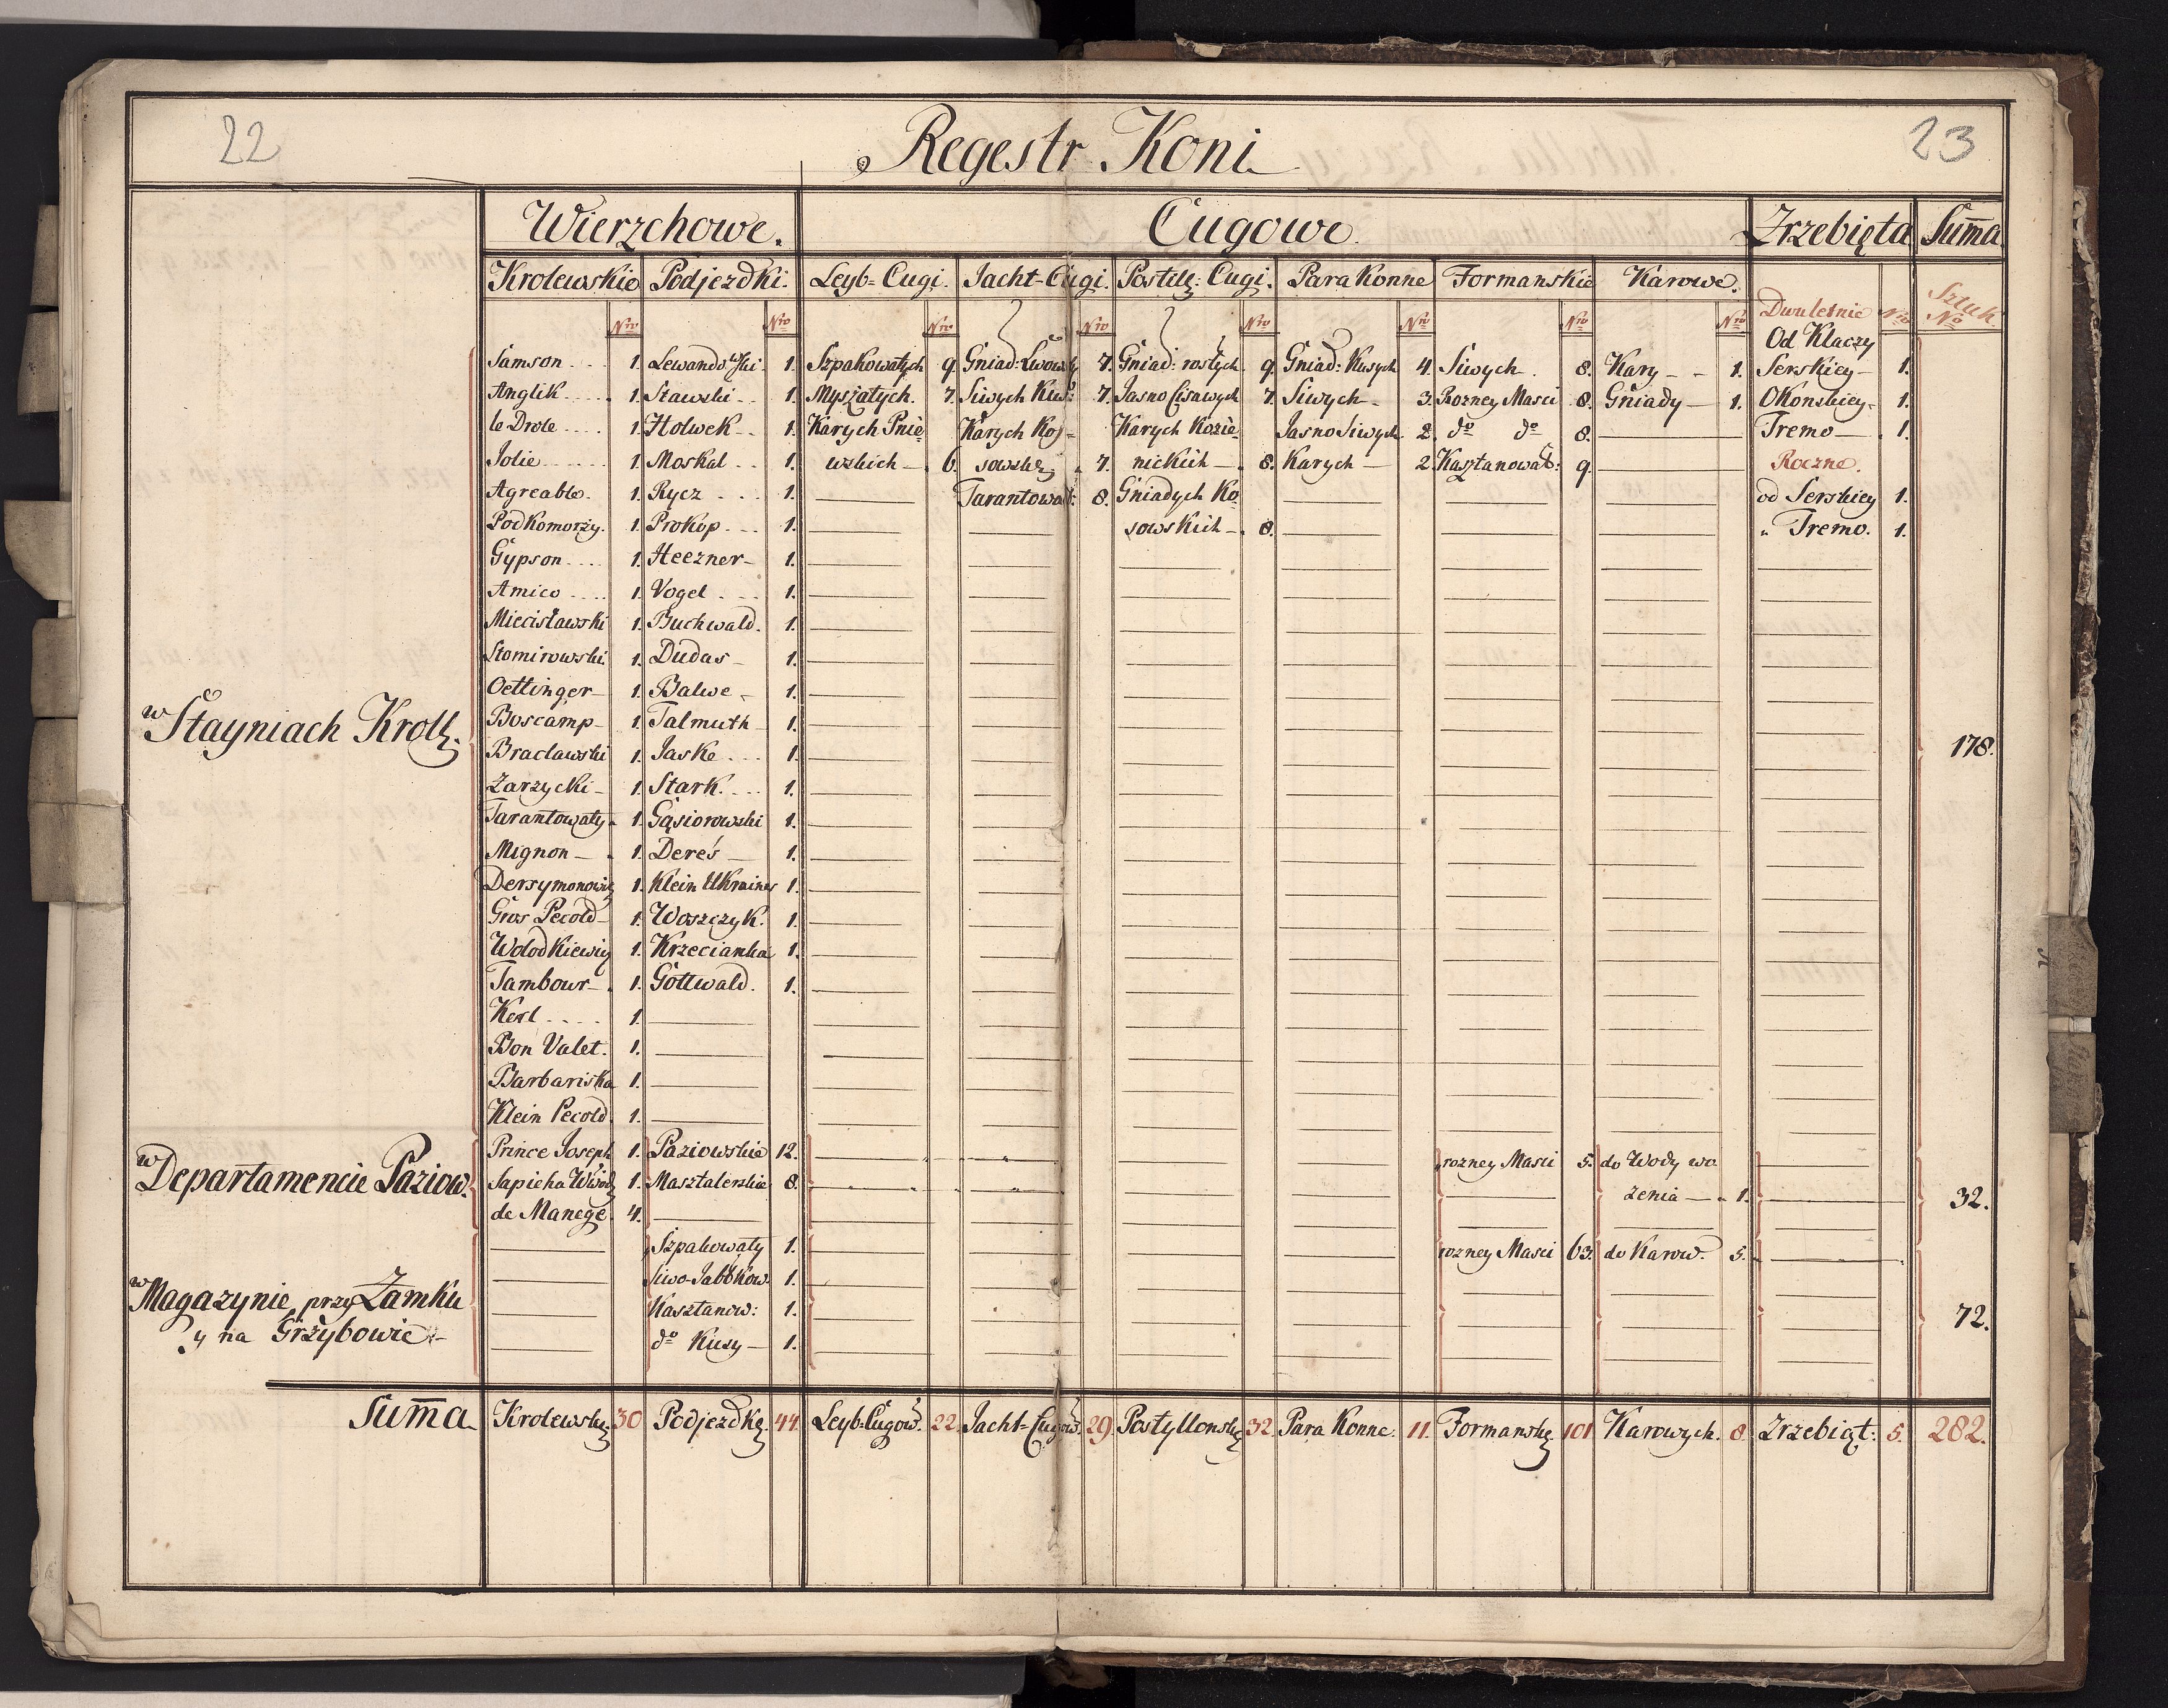 22
Regestr Koni
23
Wierzchowe. Cugowe. Zrzebięta Sum̄a
Krolewskie Podjezdki. Leyb=Cugi. Jacht=Cugi. Postylę: Cugi. Para Konne Formanskie Karowe.
Nro Nro Nro Nro Nro Nro Nro Nro Dwuletnie Nro Sztuk. No
Od Klaczy
Samson 1. Lewandowski 1. Szpakowatych 9. Gniad: Lwowsk 7. Gniad: rosłych 9. Gniad: Kusych 4. Siwych 8. Kary 1. Serskiey 1.
Anglik 1. Stawski 1. Myszatych. 7. Siwych 7. Jasno Cisawych 7. Siwych 3. Rozney Masci 8. Gniady 1. Okonskiey 1.
le Drole 1. Holwek 1. Karych Pnie= Karych Kos= Karych Kozie= Jasno Siwych 2. do do 8. Tremo 1.
Jolie 1. Moskal 1. wskich 6. sowskę 7. nickich 8. Karych 2. Kasztanowat: 9. Roczne.
Agreable. 1. Rycz 1. Tarantowat: 8. Gniadych Ko= od Serskiey 1.
PodKomorzy. 1. Prokop 1. sowskich 8. " Tremo. 1.
Gypson 1. Heezner 1.
Amico 1. Vogel 1.
Miecisławski 1. Buchwald. 1.
Słomirowski 1. Dudas 1.
Oettinger 1. Balwe 1.
w Stayniach Krolę. Boscamp 1. Talmuth 1.
Bracławski 1. Jaske 1. 178.
Zarzycki 1. Stark. 1.
Tarantowaty 1. Gąsiorowski 1.
Mignon 1. Dereś 1.
Dersymonowicz 1. Klein Ukrainer 1.
Gros Pecold 1. Woszczyk. 1.
Wołodkiewicz 1. Krzecianka 1.
Tambour 1. Gottwald. 1.
Kerl 1.
Bon Valet. 1.
Barbariska 1.
Klein Pecold. 1.
w Departamencie Paziow. Prince Joseph 1. Paziowskie 12. rozney Masci 5. do Wody wo=
Sapieha Wwod 1. Masztalerskie 8. zenia 1. 32.
de Manege. 4.
Szpakowaty 1. rozney Masci 63. do Karow. 5.
w Magazynie przy Zamku Siwo-Jabłkow. 1.
y na Grzybowie Kasztanow: 1. 72.
do Kusy 1.
Sum̄a Krolewskę 30 Podjezdkę. 44. Leyb=Cugow. 22. Jacht=Cugow. 29. Postyllonskę 32. Para Konne. 11. Formanskę 101 Karowych. 8. Zrzebiąt: 5. 282.